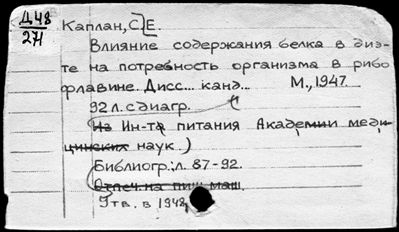 Д48
271
Каплан, С.Е.
Влияние содержания белка в диэ-
те на потребность организма в рибо
флавине. Дисс... канд... М., 1947.
92 л. с диагр.
(Из Ин-та питания Академии меди-
цинских наук.)
Библиогр.: л. 87-92.
Отпеч. на пиш. маш.
Утв. в 1948.